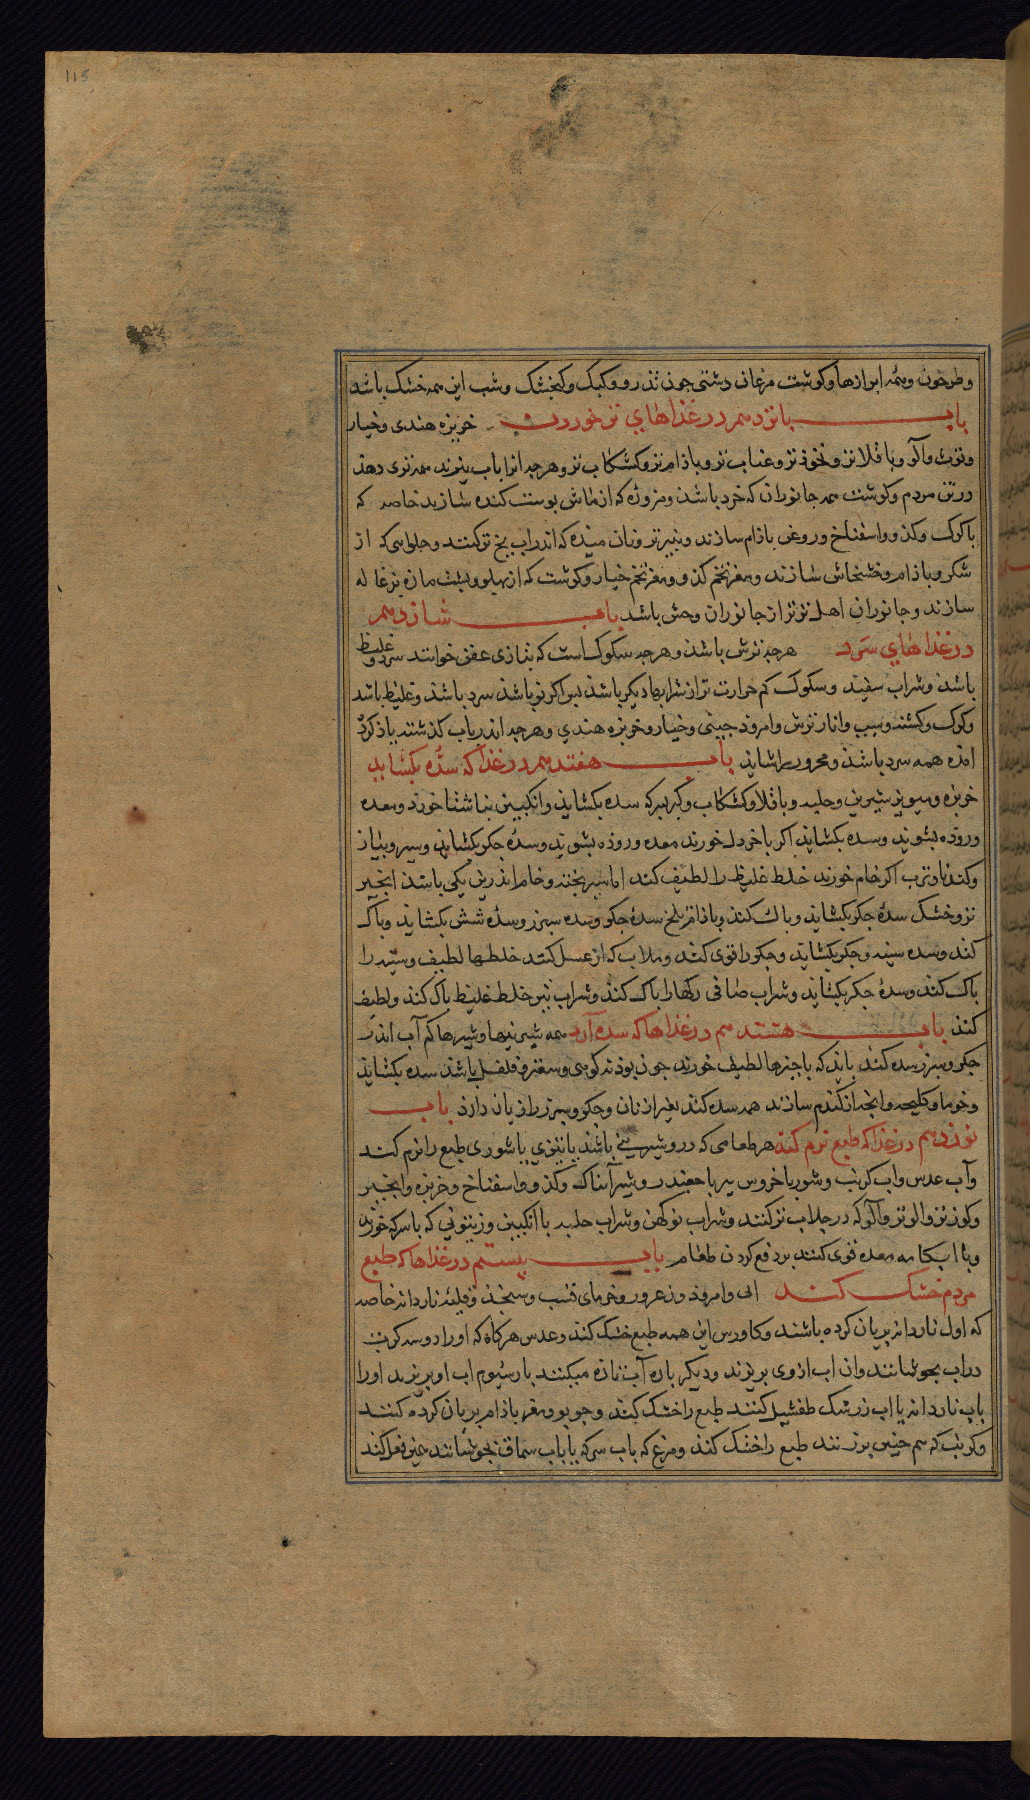 115
وطرخون وهمه ابزارها وکوشت مرغان دشتی جون تذرو وکبک وکنجشک وشب این همه خشک باشد
باب بانزدهم در غذاهای تر خوردن خربزه هندی وخیار
وتوث والو وباقلا تر ونخوذ تر وعناب تر وباذام تر وکشکاب تر وهرجه انرا باب بپزند همه تری دهذ
در تن مردم وکوشت همه جانوران که خرد باشذ ومزوره که از ماش بوست کنده سازند خاصه که
با کوک وکذو واسفناخ وروغن باذام سازند وپنیر تر ونان میذه که اندر اب یخ تر کنند وحلواسی که از
شکر وباذام وخشخاش سازند ومغز تخم کذو ومغز تخم خیار وکوشت که از پهلو وپشت مازه بزغاله
سازند وجانوران اهلی تر تر از جانوران وحشی باشد باب شازدهم
در غذاهای سرد هرجه ترش باشذ وهرجه سکوک است که بتازی عفص خوانند سرد وغلیظ
باشذ وشراب سفیذ وسکوک کم حرارت تر از شرابها دیکر باشذ بس اکر نو باشذ سرد باشذ وغلیظ باشد
وکوک وکشنه وسیب وانار ترش وامروذ جینی وخیار وخربزه هندی وهرجه اندر باب کذشته یاذ کرد
امذه همه سرد باشذ ومحرور را شایذ باب هفتدهم در غذا که سده بکشاید
خربزه ومویز شیرین وحلبه وباقلا وکشکاب وکبر بسرکه سده بکشایذ وانکبین بناشتا خورد ومعده
وروده بشوید وسده بکشاید اکر با خردل خورند معده وروده بشوید وسدهٔ جکر بکشایذ وسیر وپیاز
وکندنا وترب اکر خام خورند خلط غلیظ را لطیف کند اما سیر پخته وخام اندرین یکی باشذ انجیر
تر وخشک سدهٔ جکر بکشاید وباک کند وباذام تلخ سدهٔ جکر وسده سبرز وسدهٔ شش بکشاید وباک
کند وسده سینه وجکر بکشاید وجکر را قوی کند وجلاب که از عسل کنند خلطها لطیف وسینه را
باک کند وسدهٔ جکر بکشاید وشراب صافی رکها را باک کند وشراب تیز خلط غلیظ باک کند ولطیف
کند باب هشتدهم در غذاها که سده آرد همه شیرینیها وشیرها که آب اندر
جکر وسبرز سده کند بایذ که با جیزها لطیف خورند جون بوذنه کوهی وسعتر وفلفل باشذ سده بکشایذ
وخرما وکلیچه وانجه از کندم سازند همه سده کند بغیر از نان وجکر وسبرز را زیان دارذ باب
نوزدهم در غذا که طبع نرم کند هر طعامی که در و شیرینی باشذ یا تیزی یا شوری طبع را نرم کند
وآب عدس واب کرنب وشوربا خروس پیر با جغندر وشیر آبناک وکذو واسفناخ وخربزه وانجیر
وکوز تر والو تر وآلو که در جلاب تر کنند وشراب نو کهن وشراب حلبه با انکبین وزیتونی که با سرکه خورند
وبا ابکامه معده قوی کنند بر دفع کردن طعام باب بیستم در غذاها که طبع
مردم خشک کند الی وامروذ وزعرور وخرمای قسب وسنجذ وقلیه ناردانه خاصه
که اول ناردانه بریان کرده باشند وکاورس این همه طبع خشک کند وعدس هرکاه که او را دو سه کرت
در اب بجوشانند وان اب ازوی بریزند ودیکر باره آب تازه میکنند بار سیوم اب او بریزند اورا
باب ناردانه یا اب زرشک طفشیل کنند طبع را خشک کند وجو بو ومغز باذام بریان کرده کنند
وکرنب که هم جنین بزنند طبع را خشک کند ومرغ که باب سرکه یا باب سماق بجوشانند همین فعل کند